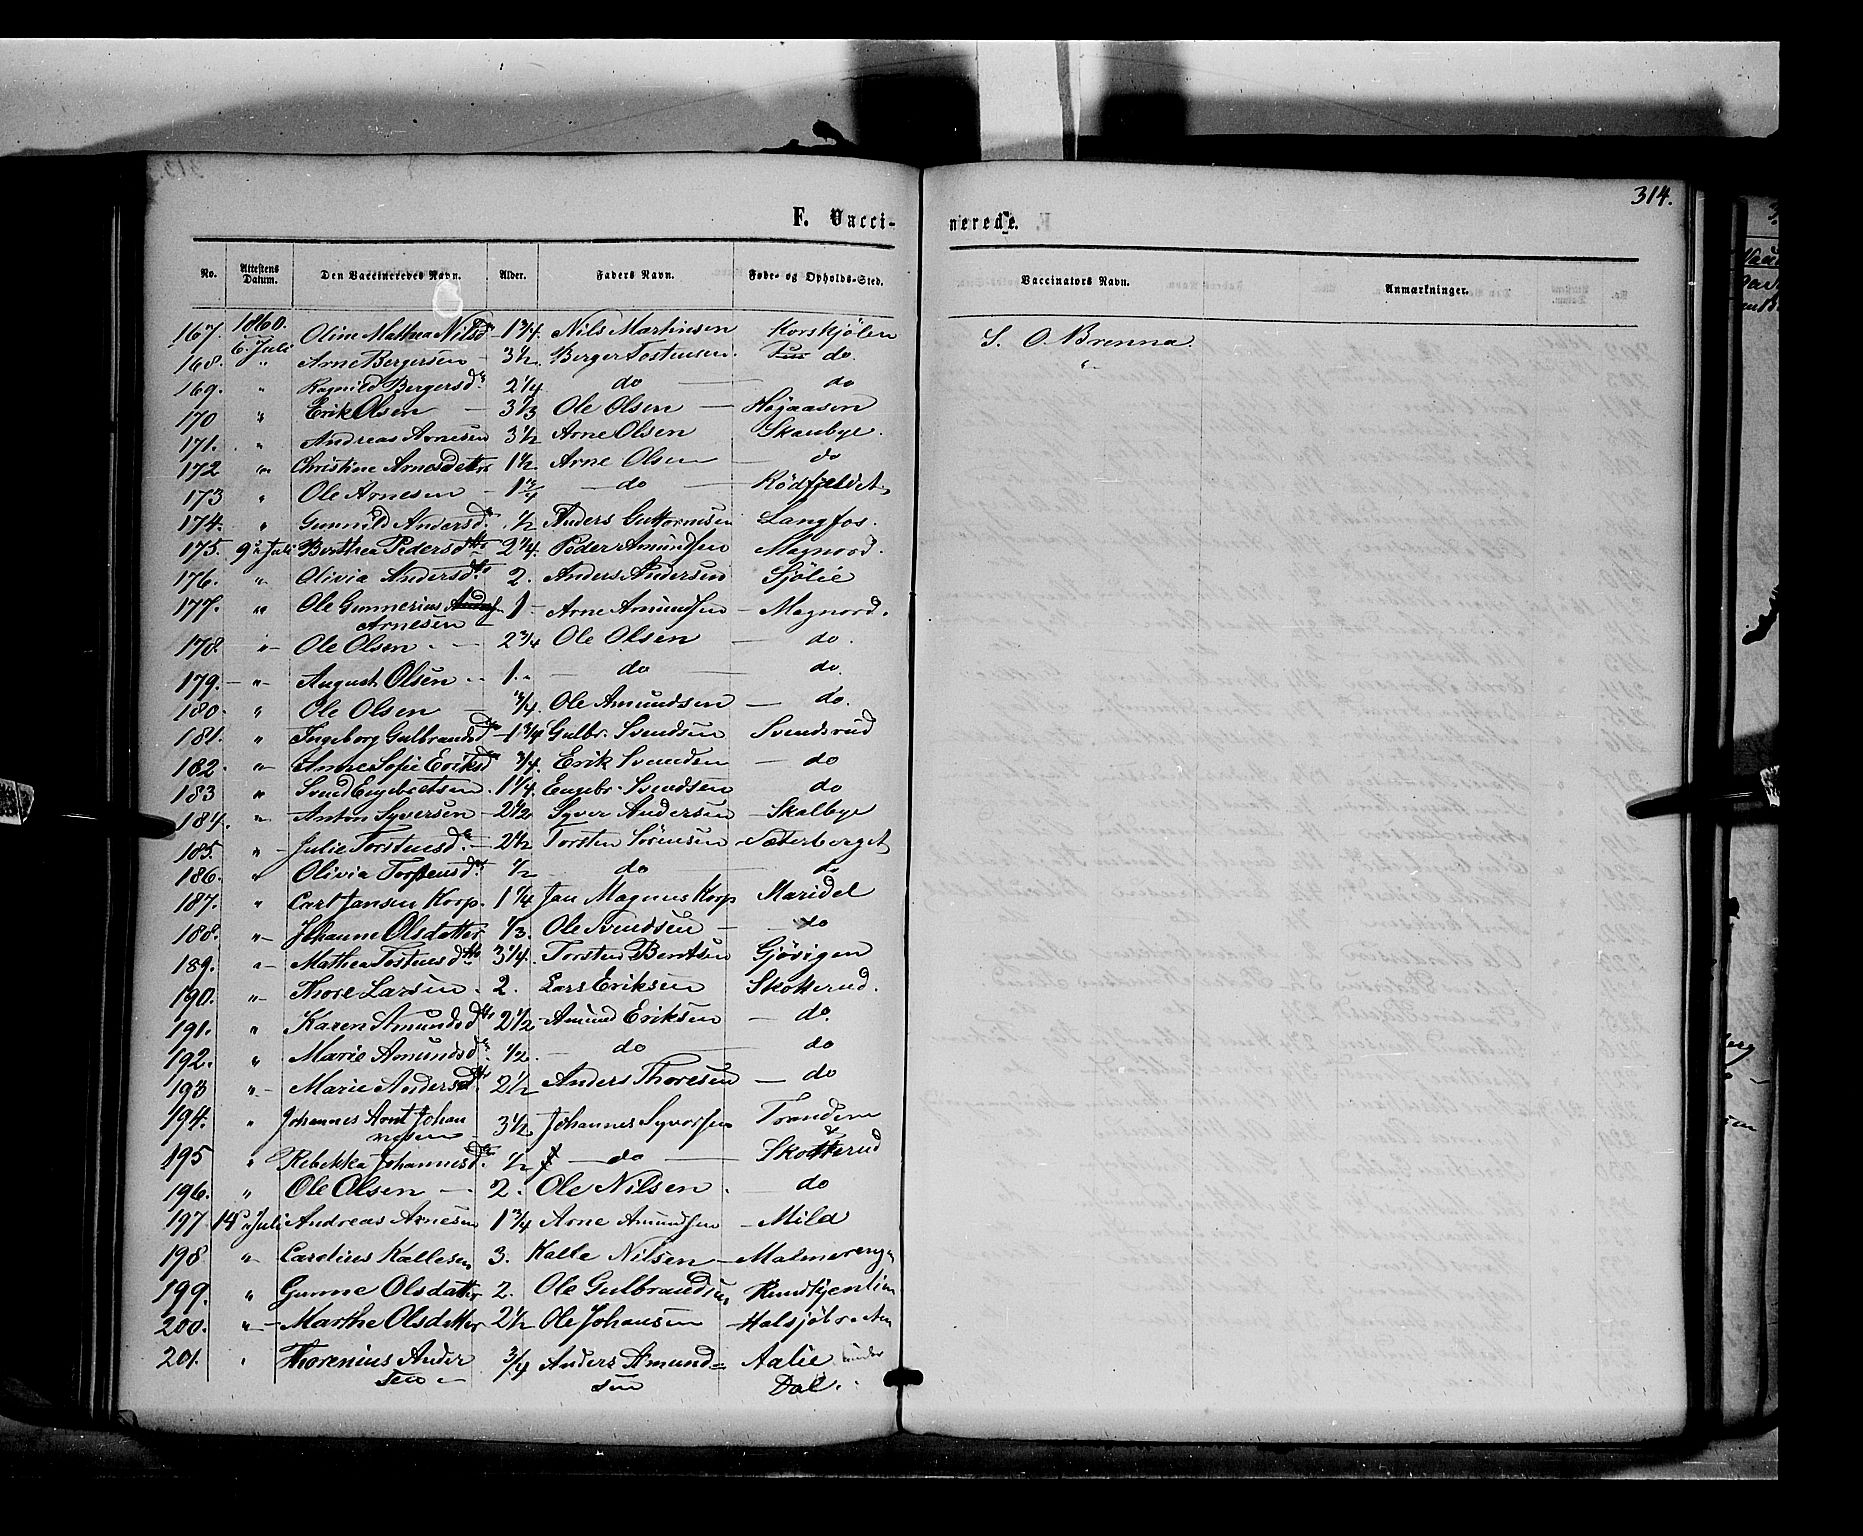 314.
F. Vacci-
nerede.
No. Attestens Datum. Den Vaccineredes Navn. Alder. Faders Navn. Føde- og Opholds-Sted. Vaccinators Navn. Anmærkninger.
1860.
167. 6 Juli Oline Mathea Nilsd 1 3/4 Nils Martinsen Korskjølen S. O. Brenna
168. " Arne Bergersen 3 1/2 Berger Tostensen. do. "
169. " Ragnild Bergersd. 2 1/4 do do
170 " Erik Olsen 3 1/3 Ole Olsen Høgaasen
171. " Andreas Arnesen 3 1/2 Arne Olsen Skanbye.
172 " Christine Arnesdatter 1 1/2 Arne Olsen do
173 " Ole Arnesen 1 3/4 do Rödfjeldet
174. " Gunnild Andersd. 1/2 Anders Guttormsen Langfos.
175. 9 Juli Berthea Pedersdtr 2 1/4. Peder Amundsen Magnord.
176. " Olivia Andersdtr 2. Anders Andersen Sjølie
177. " Ole Gunnerius
Arnesen 1 Arne Amundsen Magnord.
178. " Ole Olsen 2 3/4 Ole Olsen do.
179. " August Olsen 1. do do.
180. " Ole Olsen 3/4. Ole Amundsen do.
181. " Ingeborg Gulbrandsd 1 3/4 Gulbr. Svendsen Svendsrud
182. " Anne Sofie Eriksd 3/4. Erik Svendsen do
183 " Svend Engebretsen. 1 1/4. Engebr. Svendsen do
184. " Anton Syversen 2 1/2 Syver Andersen Skalbye
185. " Julie Torstensd. 2 1/2 Torsten Sörensen Sæterberget
186. " Olivia Torstensd. 1/2 do do
187. " Carl Jansen Korp. 1 1/4 Jan Magnus Korp Maridel
188. " Johanne Olsdatter 1/3. Ole Svendsen do
189. " Mathea Tostensdtr 3 1/4. Torsten Bentsen Gjövigen
190. " Thore Larsen. 2. Lars Eriksen Skotterud.
191. " Karen Amundsd 2 1/2 Amund Eriksen do.
192. " Marie Amundsd. 1/2. do do
193 " Marie Andersd. 2 1/2 Anders Thoresen do
194. " Johannes Arnt Johan
nesen 3 1/2 Johannes Syversen Trandem
195 " Rebekka Johannesd. 1/2 do Skotterud
196. " Ole Olsen 2. Ole Nilsen. do
197 14 Juli Andreas Arnesen 1 3/4 Arne Amundsen Mild
198 " Carolius Kallesen 3. Kalle Nilsen Malmerengen
199. " Gunne Olsdatter 2. Ole Gulbrandsen
200. " Marthe Olsdatter 2 1/2 Ole Johansen Halsjöbraaten
201. " Thorenius Ander
sen 3/4 Anders Amund=
sen Aalie under
Dal.